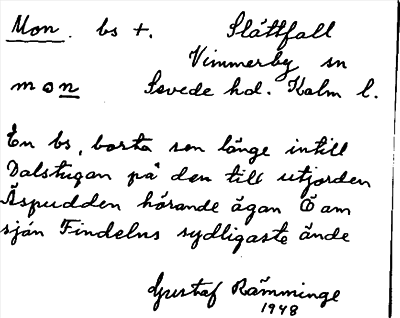 Mon. bs +. Slåttfall
Vimmerby sn
mon Sevede hd. Kalm l.
En bs, borta sen länge intill
Dalstugan på den till utjorden
Äspudden hörande ägan Ö am
sjön Findelns sydligaste ände
Gustaf Rämminge
1948